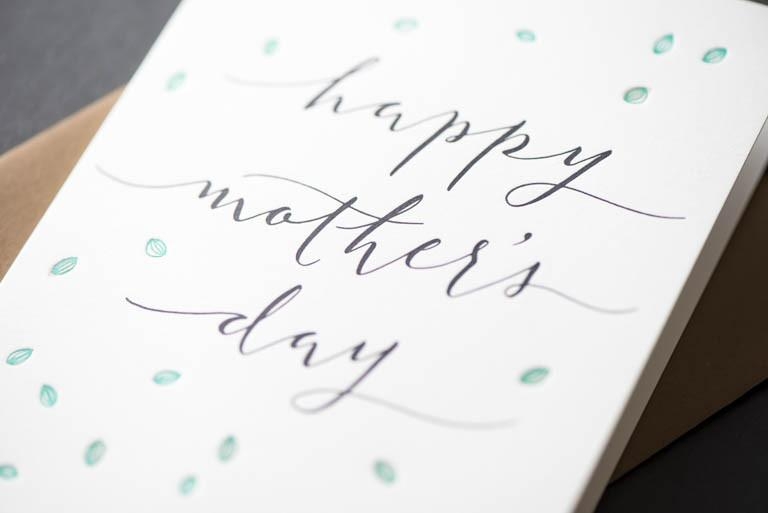 happy
mother's
day